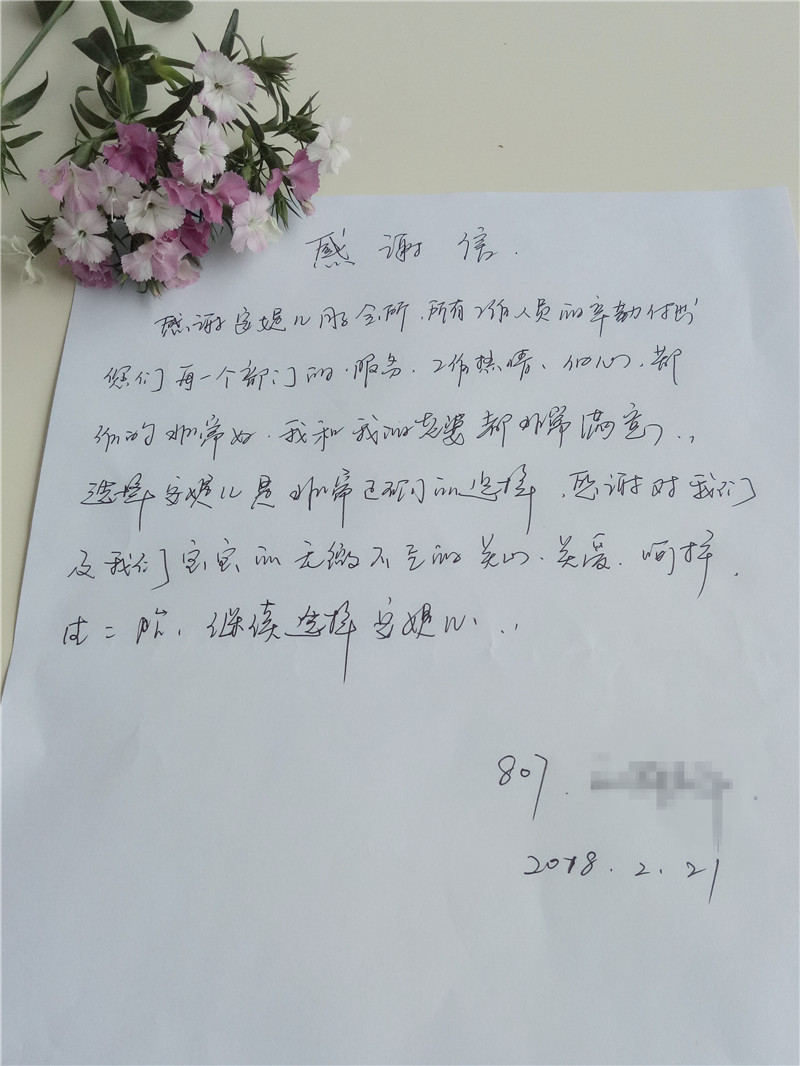 感谢信.
感谢安媞儿月子会所.所有工作人员的辛勤付出
您们每一个部门的.服务.工作热情、细心.都
做的非常好.我和我的老婆都非常满意了...
选择安媞儿是非常正确的选择.感谢对我们
及我们宝宝的无微不至的关心.关爱.呵护.
生二胎、继续选择安媞儿...
807.
2018.2.21